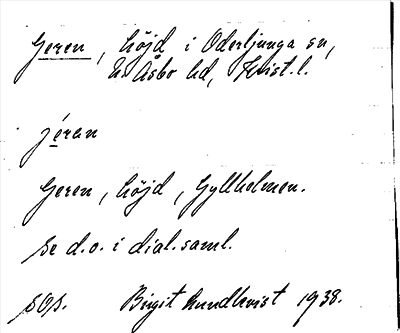 Geren, höjd i Oderljunga sn,
N. Åsbo hd, Krist. l.
jéran
Geren, höjd, Gyllholmen.
se d.o. i dial.saml.
Birgit Lundkvist 1938.